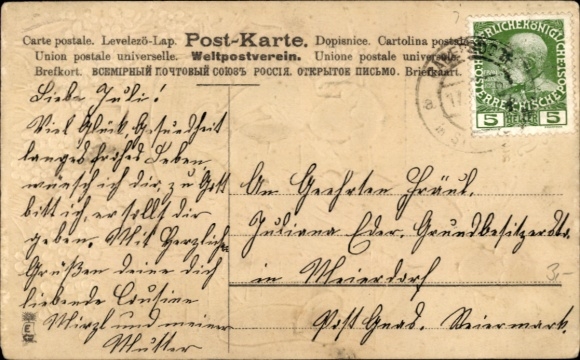 Carte postale. Levelezö-Lap. Post-Karte. Dopisnice. Cartolina postale.
Union postale universelle. Weltpostverein. Unione postale universale.
Brefkort. ВСЕМІРНЫЙ ПОЧТОВЫЙ СОЮЗЪ РОССІЯ. ОТКРЫТОЕ ПИСЬМО. Briefkaart.
5 HELLER 5
Liebe Juli!
Viel Glück, Gesundheit
langes frohes Leben
wünsch ich dir, zu Gott
bitt ich er sollt dir
geben. Mit Herzlich
Grüßen deine dich
liebende Cousine
Mirzl und meiner
Mutter
An Geehrten Fräul.
Juliana Eder. Grundbesitzerstr.
in Meierdorf
Post Gnas. Steiermark.
3-